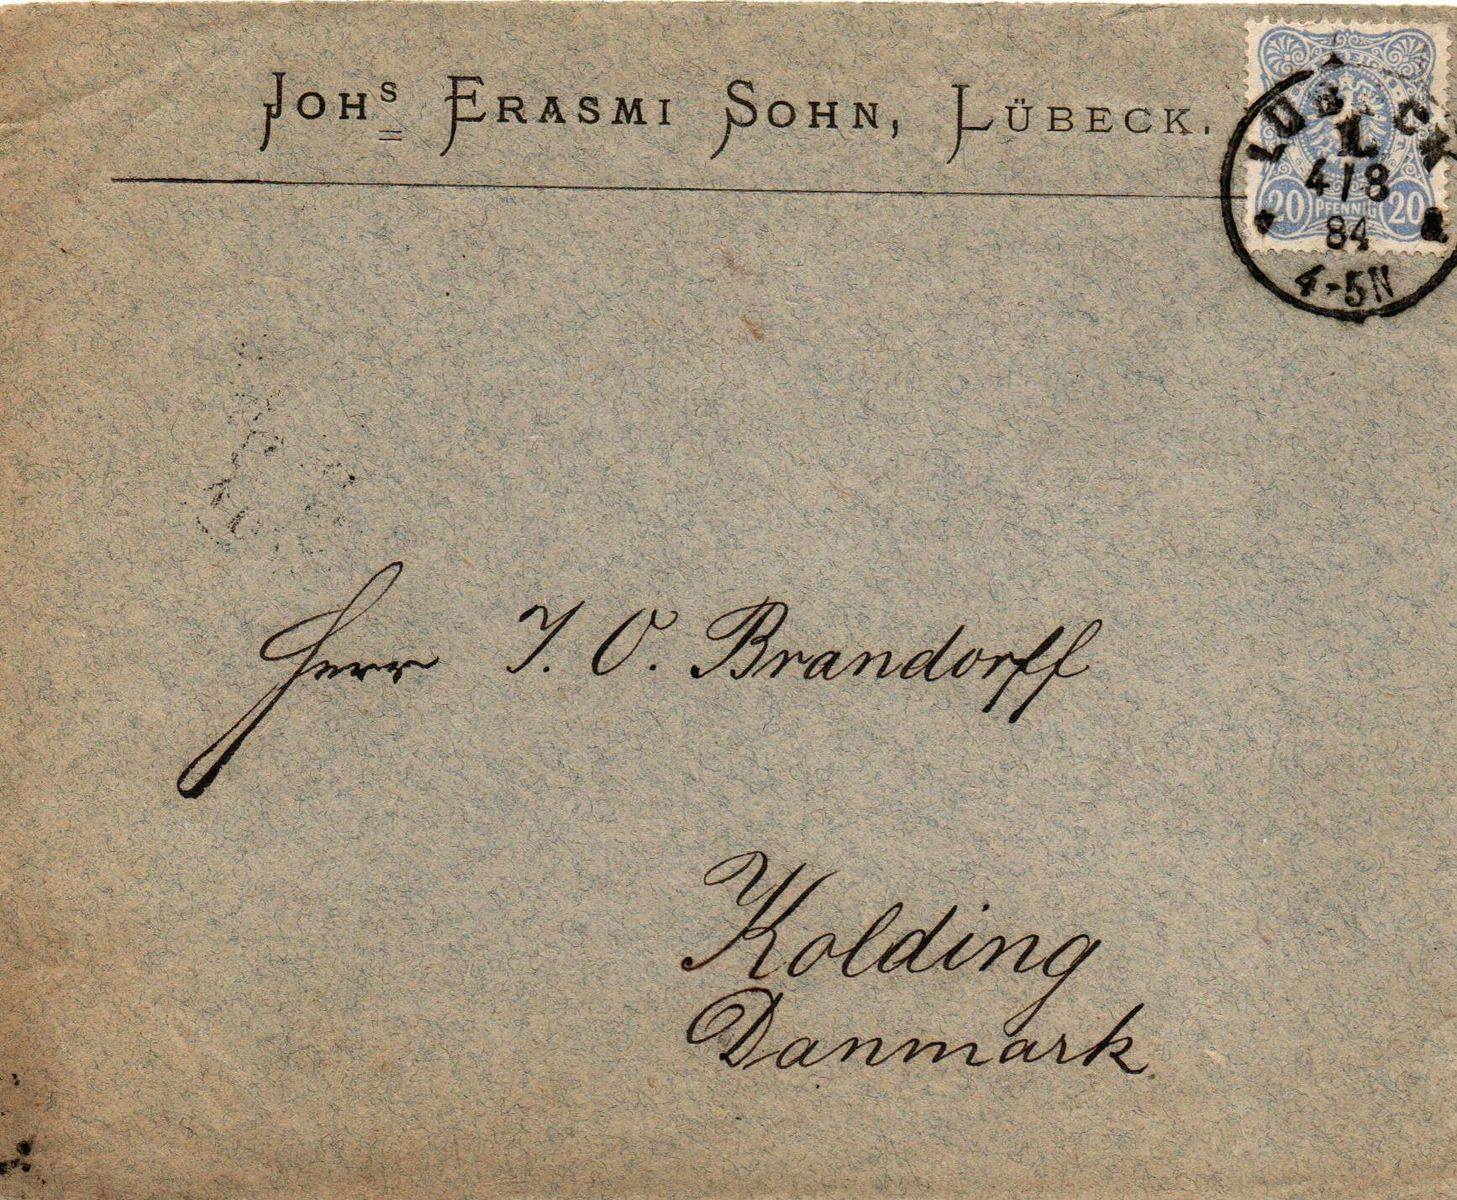 Johs Erasmi Sohn, Lübeck.
LÜBECK
1.
4/8
84
4-5N
20 PFENNIG 20
Herr J. O. Brandorff
Kolding
Danmark.